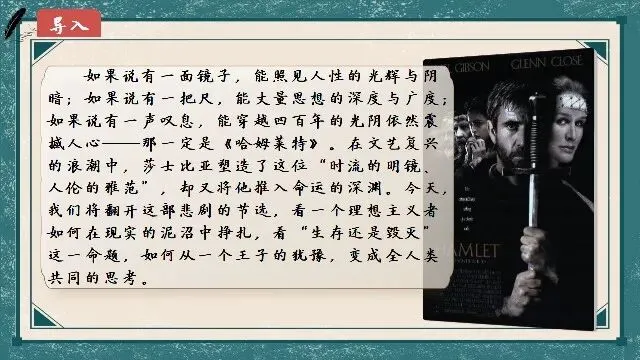 导入
如果说有一面镜子，能照见人性的光辉与阴
暗；如果说有一把尺，能丈量思想的深度与广度；
如果说有一声叹息，能穿越四百年的光阴依然震
撼人心——那一定是《哈姆莱特》。在文艺复兴
的浪潮中，莎士比亚塑造了这位“时流的明镜、
人伦的雅范”，却又将他推入命运的深渊。今天，
我们将翻开这部悲剧的节选，看一个理想主义者
如何在现实的泥沼中挣扎，看“生存还是毁灭”
这一命题，如何从一个王子的犹豫，变成全人类
共同的思考。
GIBSON GLENN CLOSE
HAMLET